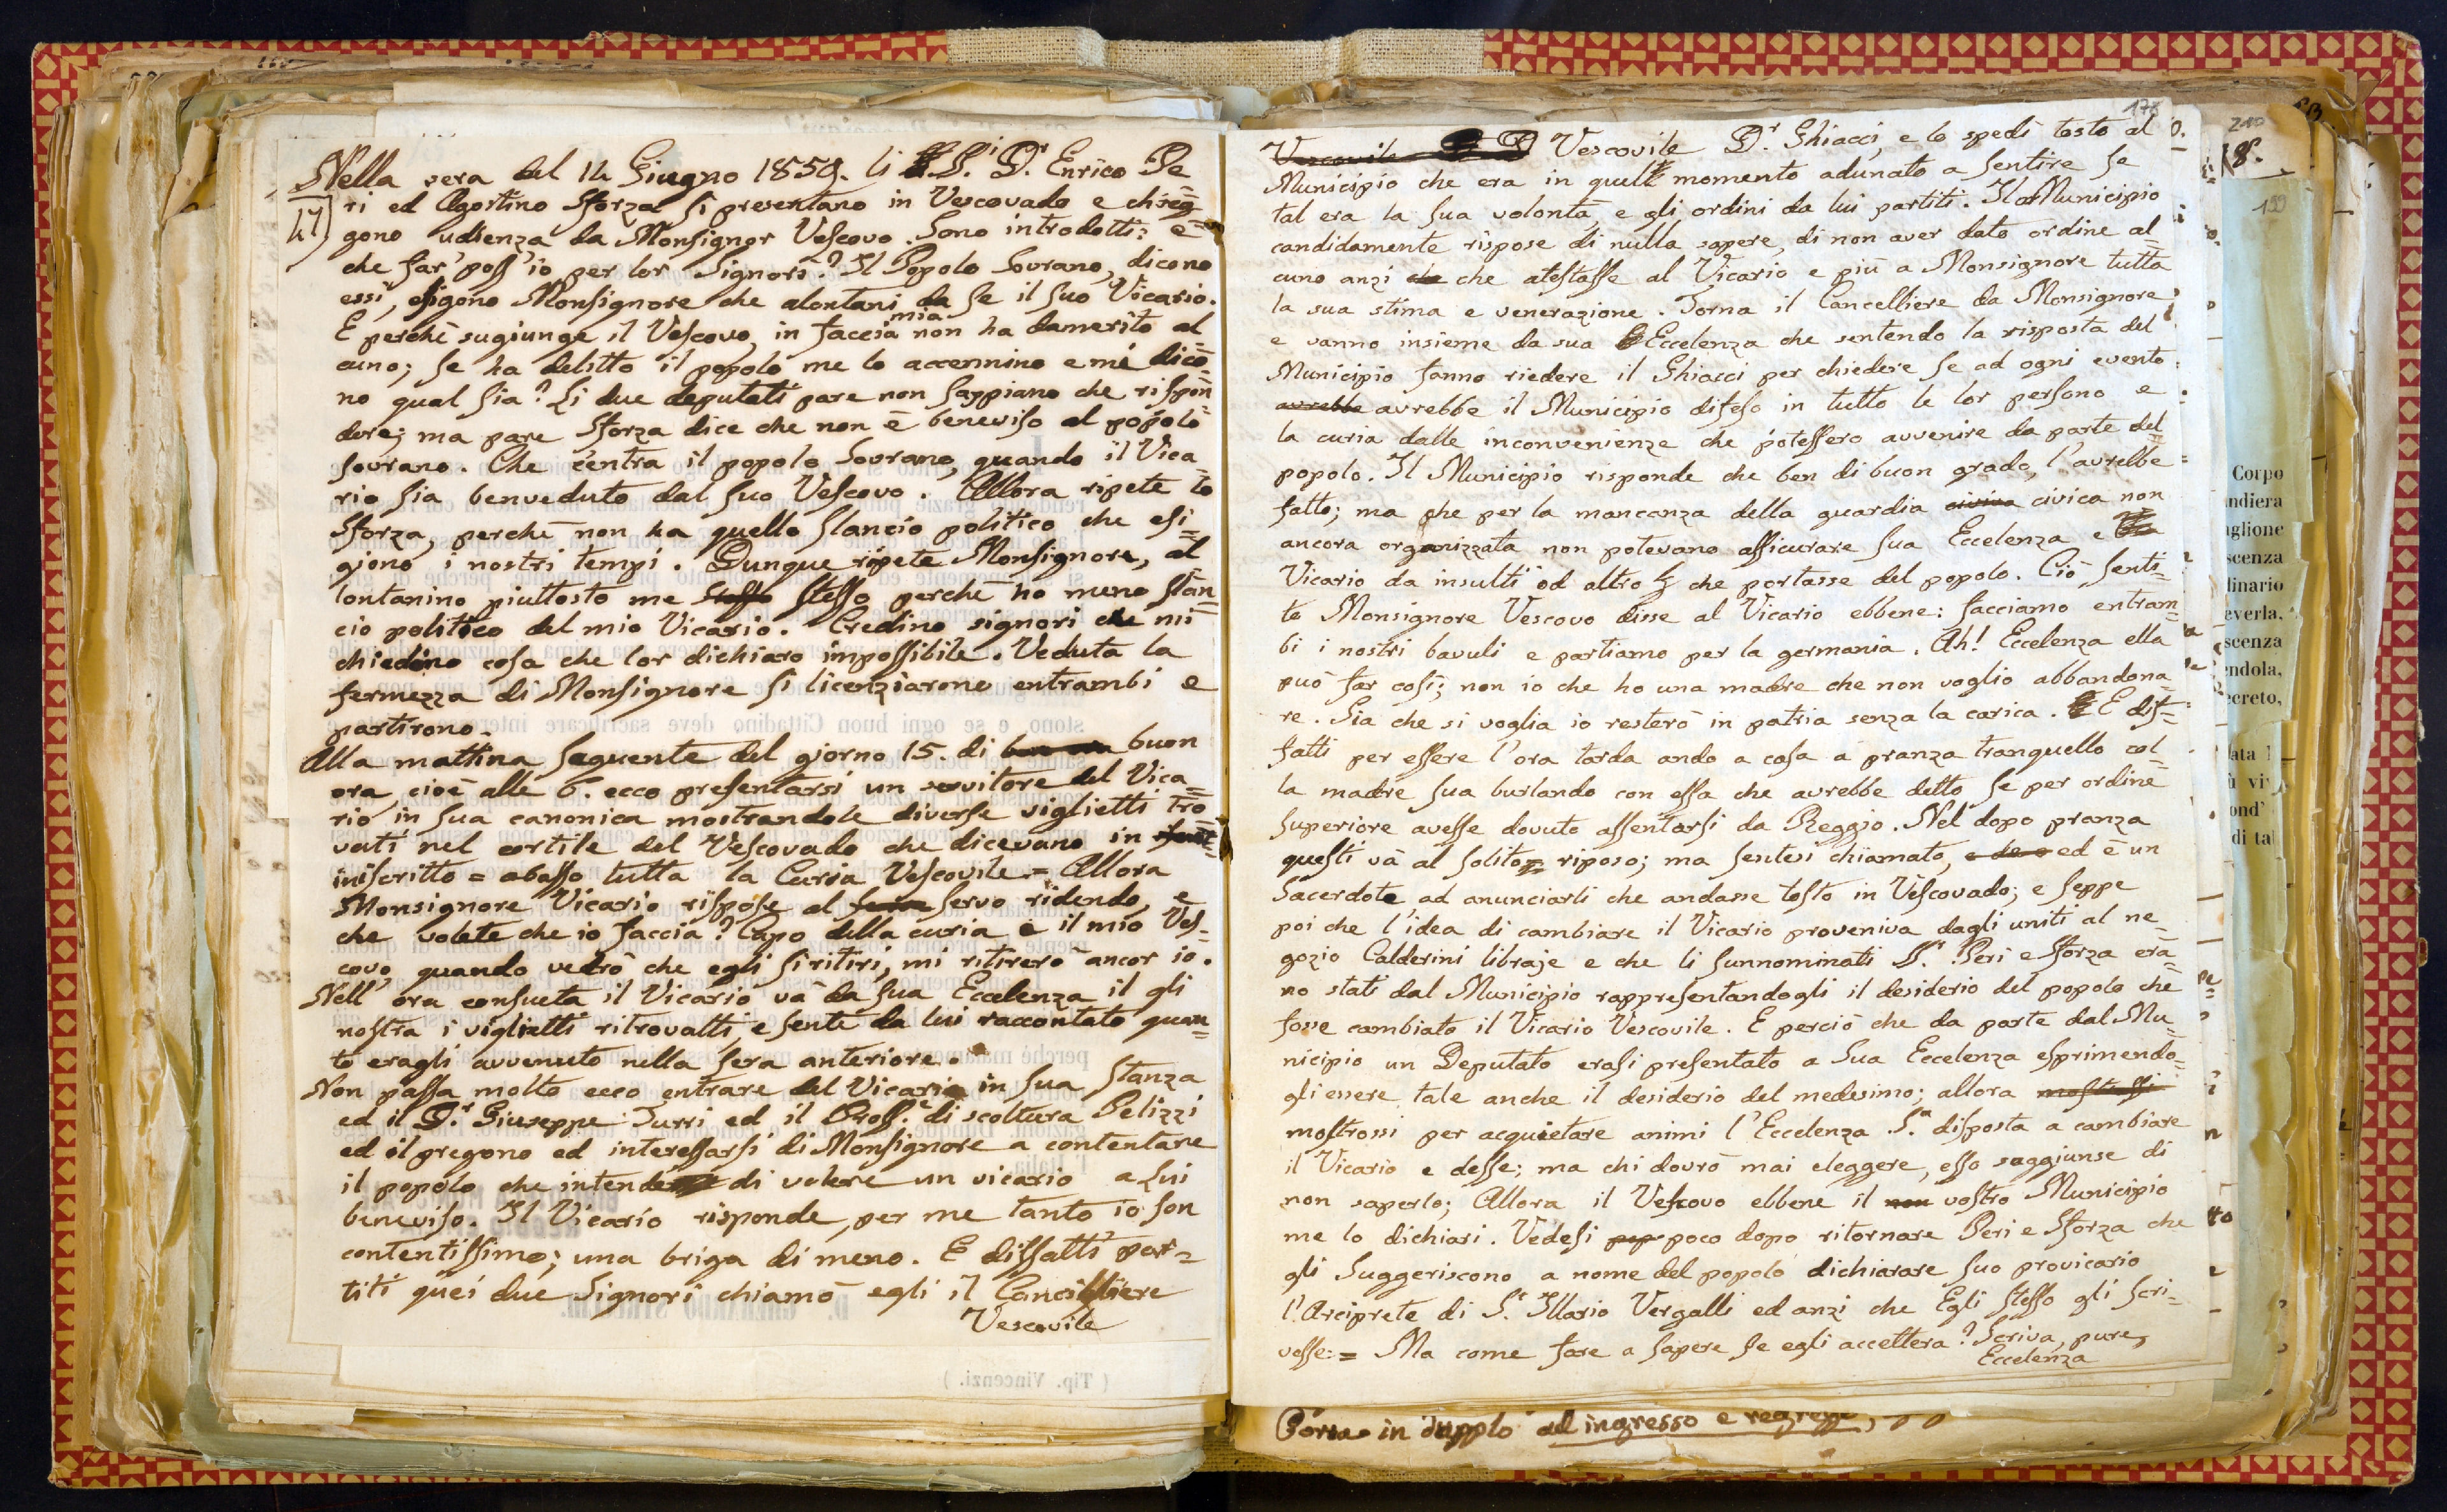 Nella sera del 14 Giugno 1859. li S.S.i D.r Enrico Pe
ri ed Agostino Sforza si presentano in Vescovado e chieg=
47
gono udienza da Monsignor Vescovo. Sono introdotti: e
che far' poss'io per lor Signori? Il Popolo Sovrano, dicono
essi, esigono Monsignore che alontani da se il suo Vicario.
E perchè sugiunge il Vescovo, in faccia mia non ha damerito al
cuno; se ha delitto il popolo me lo accennino e mi dico=
no qual sia? Li due deputati pare non sappiano che rispon
dere; ma pare Sforza dice che non è beneviso al popolo
sovrano. Che c'entra il popolo Sovrano, quando il Vica=
rio sia benveduto dal suo Vescovo. Allora ripete lo
Sforza, perchè non ha quello slancio politico che esi=
giono i nostri tempi. Dunque ripete Monsignore, al
lontanino piuttosto me stesso perchè ho meno slan=
cio politico del mio Vicario. Credino signori che mi
chiedono cosa che lor dichiaro impossibile. Veduta la
fermezza di Monsignore si licenziarono entrambi e
partirono.
Alla mattina seguente del giorno 15. di buon
ora, cioè alle 6. ecco presentarsi un servitore del Vica=
rio in sua canonica mostrandole diverse viglietti tro
vati nel cortile del Vescovado che dicevano in
iniscritto = abasso tutta la Curia Vescovile = Allora
Monsignore Vicario rispose al servo ridendo, e
che volete che io faccia? Capo della curia è il mio Ves=
covo, quando vedrò che egli si ritiri, mi ritirerò ancor io.
Nell'ora consueta il Vicario và da sua Eccelenza il gli
nostra i viglietti ritrovatti, e sente da lui raccontato quan=
to eragli avvenuto nella sera anteriore.
Non passa molto ecco entrare dal Vicario in sua stanza
ed il D.r Giuseppe Turri ed il Prof.e di scoltura Pelizzi
ed il pregono ed interessarsi di Monsignore a contentare
il popolo che intende di volere un vicario a Lui
beneviso. Il Vicario risponde, per me tanto io son
contentissimo; una briga di meno. E diffatti par=
titi quei due Signori chiamò egli il Cancilliere
Vescovile
178
Vescovile Vescovile D.r Ghiacci, e lo spedì tosto al
Municipio che era in quell momento adunato a sentire se
tal era la sua volontà, e gli ordini da lui partiti. Il Municipio
candidamente rispose di nulla sapere, di non aver dato ordine al=
cuno anzi che atestasse al Vicario e più a Monsignore tutta
la sua stima e venerazione. Torna il Cancelliere da Monsignore
e vanno insieme da sua Eccelenza che sentendo la risposta del
Municipio fanno riedere il Ghiacci per chiedere se ad ogni evento
avrebbe avrebbe il Municipio difeso in tutto le lor persono e
la curia dalle inconvenienze che potessero avvenire da parte del
popolo. Il Municipio risponde che ben di buon grado, l'avrebbe
fatto; ma che per la mancanza della guardia civica non
ancora organizzata non potevano assicurare sua Eccelenza e
Vicario da insulti od altro che portasse del popolo. Ciò senti=
to Monsignore Vescovo disse al Vicario ebbene: facciamo entram=
bi i nostri bauuli e partiamo per la germania. Ah! Eccelenza ella
può far così; non io che ho una madre che non voglio abbandona=
re. Sia che si voglia io resterò in patria senza la carica. E dif=
fatti per essere l'ora tarda ando a casa a pranza tranquello col=
la madre sua burlando con essa che avrebbe detto se per ordine
superiore avesse dovuto assentarsi da Reggio. Nel dopo pranza
questi và al solito riposo; ma sentesi chiamato, ed è un
Sacerdote ad anunciarli che andasse tosto in Vescovado; e seppe
poi che l'idea di cambiare il Vicario proveniva dagli uniti al ne=
gozio Calderini libraje e che li sunnominati S.r Peri e Sforza era=
no stati dal Municipio rappresentandogli il desiderio del popolo che
fosse cambiato il Vicario Vescovile. E perciò che da parte dal Mu=
nicipio un Deputato erasi presentato a Sua Eccelenza esprimendo=
gli essere tale anche il desiderio del medesimo; allora mostrossi
mostrossi per acquietare animi l'Eccelenza S.a disposta a cambiare
il Vicario e desse; ma chi dovrò mai eleggere, esso soggiunse di
non saperlo; Allora il Vescovo ebbene il vostro Municipio
me lo dichiari. Vedesi poco dopo ritornare Peri e Sforza che
gli Suggeriscono a nome del popolo dichiarare suo provicario
l'Arciprete di S.t Illario Vergalli ed anzi che Egli stesso gli scri=
vesse: = Ma come fare a sapere se egli accettera? Scriva, pure,
Eccelenza
Porta in dupplo ad ingresso e regresso,
210
18.
199
Corpo
ndiera
aglione
scenza
linario
everla,
scenza
endola,
ecreto,
di tal
( Tip. Vincenzi. )